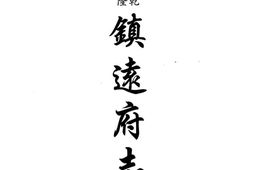 乾隆
鎮遠府志